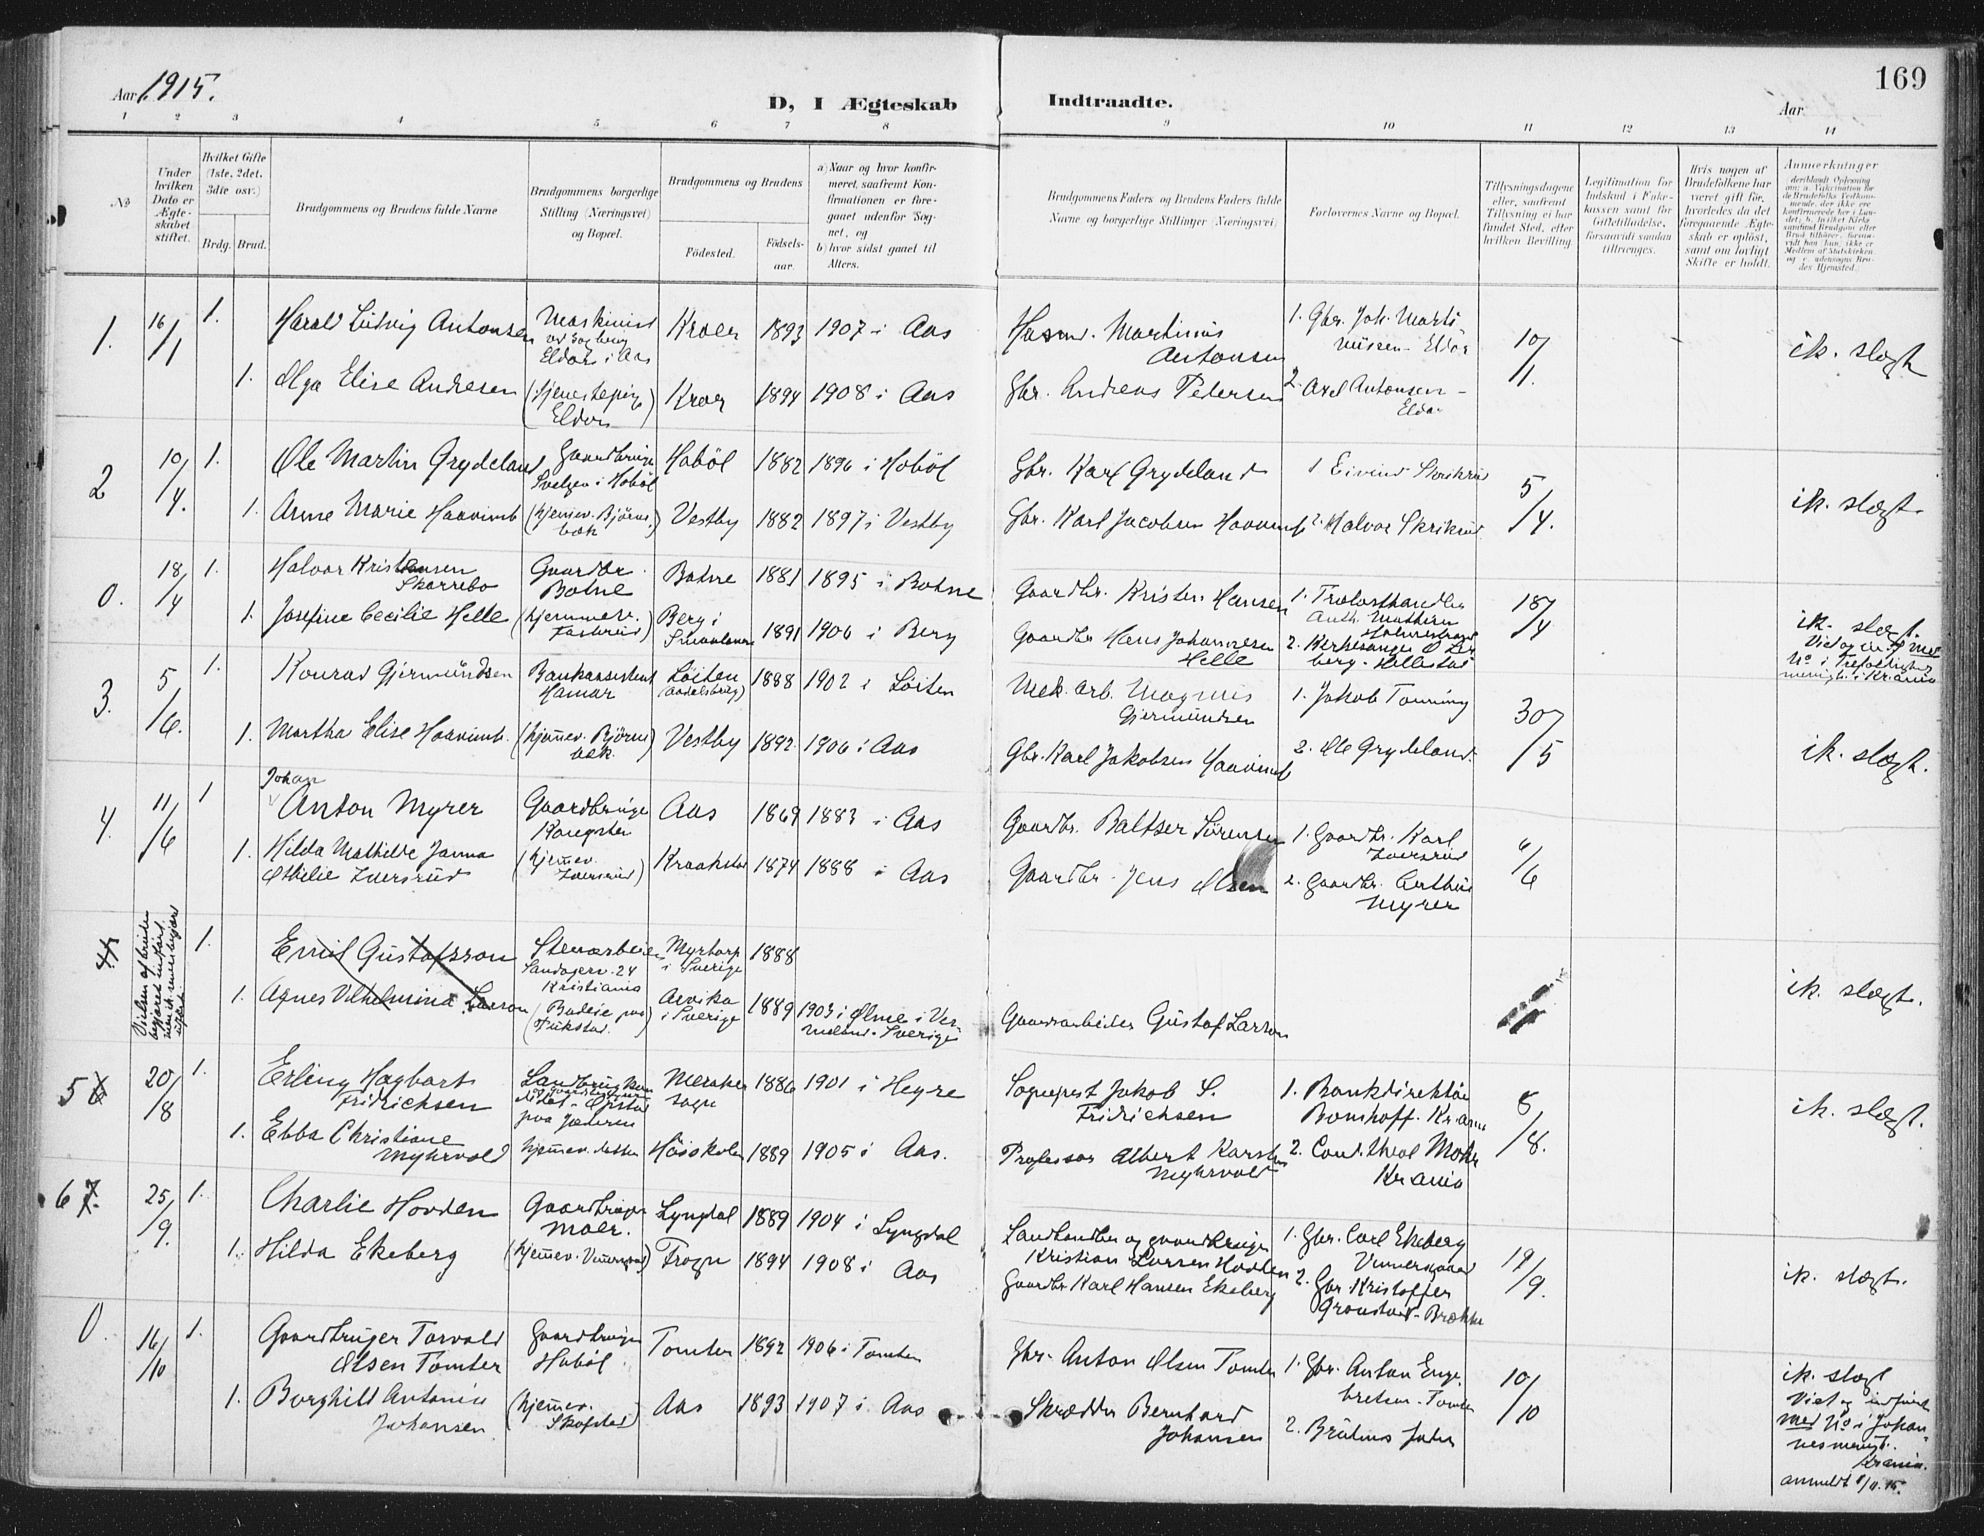 169
Aar 1915.
D, I Ægteskab Indtraadte.
Aar
1 2 3 4 5 6 7 8 9 10 11 12 13 14
No
Under hvilken Dato er Ægteskabet stiftet.
Hvilket Gifte (1ste, 2det, 3die osv.)
Brdg. Brud.
Brudgommens og Brudens fulde Navne
Brudgommens borgerlige Stilling (Næringsvei) og Bopæl.
Brudgommens og Brudens
Fødested. Fødselsaar.
a) Naar og hvor konfirmeret, saafremt Konfirmationen er foregaaet udenfor Sognet, og
b) hvor sidst gaaet til Alters.
Brudgommens Faders og Brudens Faders fulde Navne og borgerlige Stillinger (Næringsvei).
Forlovernes Navne og Bopæl.
Tillysningsdagene eller, saafremt Tillysning ei har fundet Sted, efter hvilken Bevilling.
Legitimation for Indskud i Enkekassen samt for Giftetilladelse, forsaavidt saadan tiltrænges.
Hvis nogen af Brudefolkene har været gift før, hvorledes da det foregaaende Ægteskab er opløst, samt om lovligt Skifte er holdt.
Anmerkninger
1. 16/1 1. Harald Ludvig Antonsen Maskinist Eldor i Aas Kroer 1893 1907 i Aas Martinus Antonsen 1. Gbr. Joh. Martinussen - Eldor 10/1. ik. slægt
1. Olga Elise Andresen Eldor Kroer 1894 1908 i Aas Gbr. Andreas Pedersen 2. Axel Antonsen - Eldor
2 10/4. 1. Ole Martin Grydeland Gaardbruger i Hobøl Hobøl 1882 1896 i Hobøl Gbr. Karl Grydeland 1. Eivind Skrikrud 5/4. ik. slægt.
1. Anne Marie Haavimb (hjemmev. Bjørnebæk) Vestby 1882 1897 i Vestby Gbr. Karl Jacobsen Haavimb 2. Halvor Skrikrud
0. 18/4 1. Halvor Kristensen Skarrebo Gaardbr. Botne Botne 1881 1895 i Botne Gaardbr. Kristen Hansen 1. Trelasthandler Anth. Mathern Holmestrand 18/4 ik. slægt.
1. Josefine Cecilie Helle (hjemmev. ) Berg i Smaalenene 1891 1906 i Berg Gaardbr Hans Johannesen Helle 2. Kirkesanger
3. 5/6. 1. Konrad Gjermundsen Bankassistent Hamar Løiten 1888 1902 i Løiten Mek. arb. Magnus Gjermundsen 1. Jakob Tønning 30/5
1. Martha Elise Haavimb. (hjemmev. Bjørnebæk) Vestby 1892 1906 i Aas Gbr. Karl Jakobsen Haavimb 2. Ole Grydeland. ik. slægt.
4. 11/6 1 Johan Anton Myrer Gaardbruger Kongsten Aas 1869 1883 i Aas Gaardbr. Baltser Sørensen 1. Gaardbr. Karl Iversrud 6/6
1. Hilda Mathilde Janna Othilie Iversrud (hjemmev. Iversrud) Kraakstad 1874 1888 i Aas Gaardbr. Jens Olsen 2. Gaardbr. Arthur Myrer
1. Emil Gustafsson Stenarbeider 24 Kristiania Myrtorp i Sverige 1888
1. Agnes Vilhelmina Larson (Budeie paa ) Arvika i Sverige 1889 1903 i Ølme i Vermeland. Sverige Gaardarbeider Gustaf Larson ik. slægt.
5 20/8 1. Erling Hagbart Fridrichsen paa Jæderen Meraker sogn 1886 1901 i Hegre Sogneprest Jakob S. Fridrichsen 1. Bankdirektør Bomhoff. Kr.ania 8/8. ik. slægt.
1. Ebba Christiane Myhrvold hjemmev. datter Høiskolen 1889 1905 i Aas. Professor Albert Karsten Myhrvold 2. Cand. theol Mohr Kr.ania
6 25/9. 1. Charlie Hovden Gaardbruger Moer. Lyngdal 1889 1904 i Lyngdal Landhandler og gaardbruger Kristian Larsen Hovden 1. Gbr. Carl Ekeberg 19/9.
1. Hilda Ekeberg (hjemmev. ) Frogn 1894 1908 i Aas Gaardbr Karl Hansen Ekeberg 2. Gbr Kristoffer Grønstad - Brække ik. slægt.
0. 16/10 1. Gaardbruger Torvald Olsen Tomter Gaardbruger Hobøl Tomter 1892 1906 i Tomter Gbr. Anton Olsen Tomter 1. Gbr. Anton Engebretsen. Tomter 10/10 ik. slægt
1. Borghild Antonie Johansen (hjemmev. Skofstad) Aas 1893 1907 i Aas Skrædder Bernhard Johansen 2. Brudens fader Viet og indført med No i Johannesmenigh. Kr.ania.